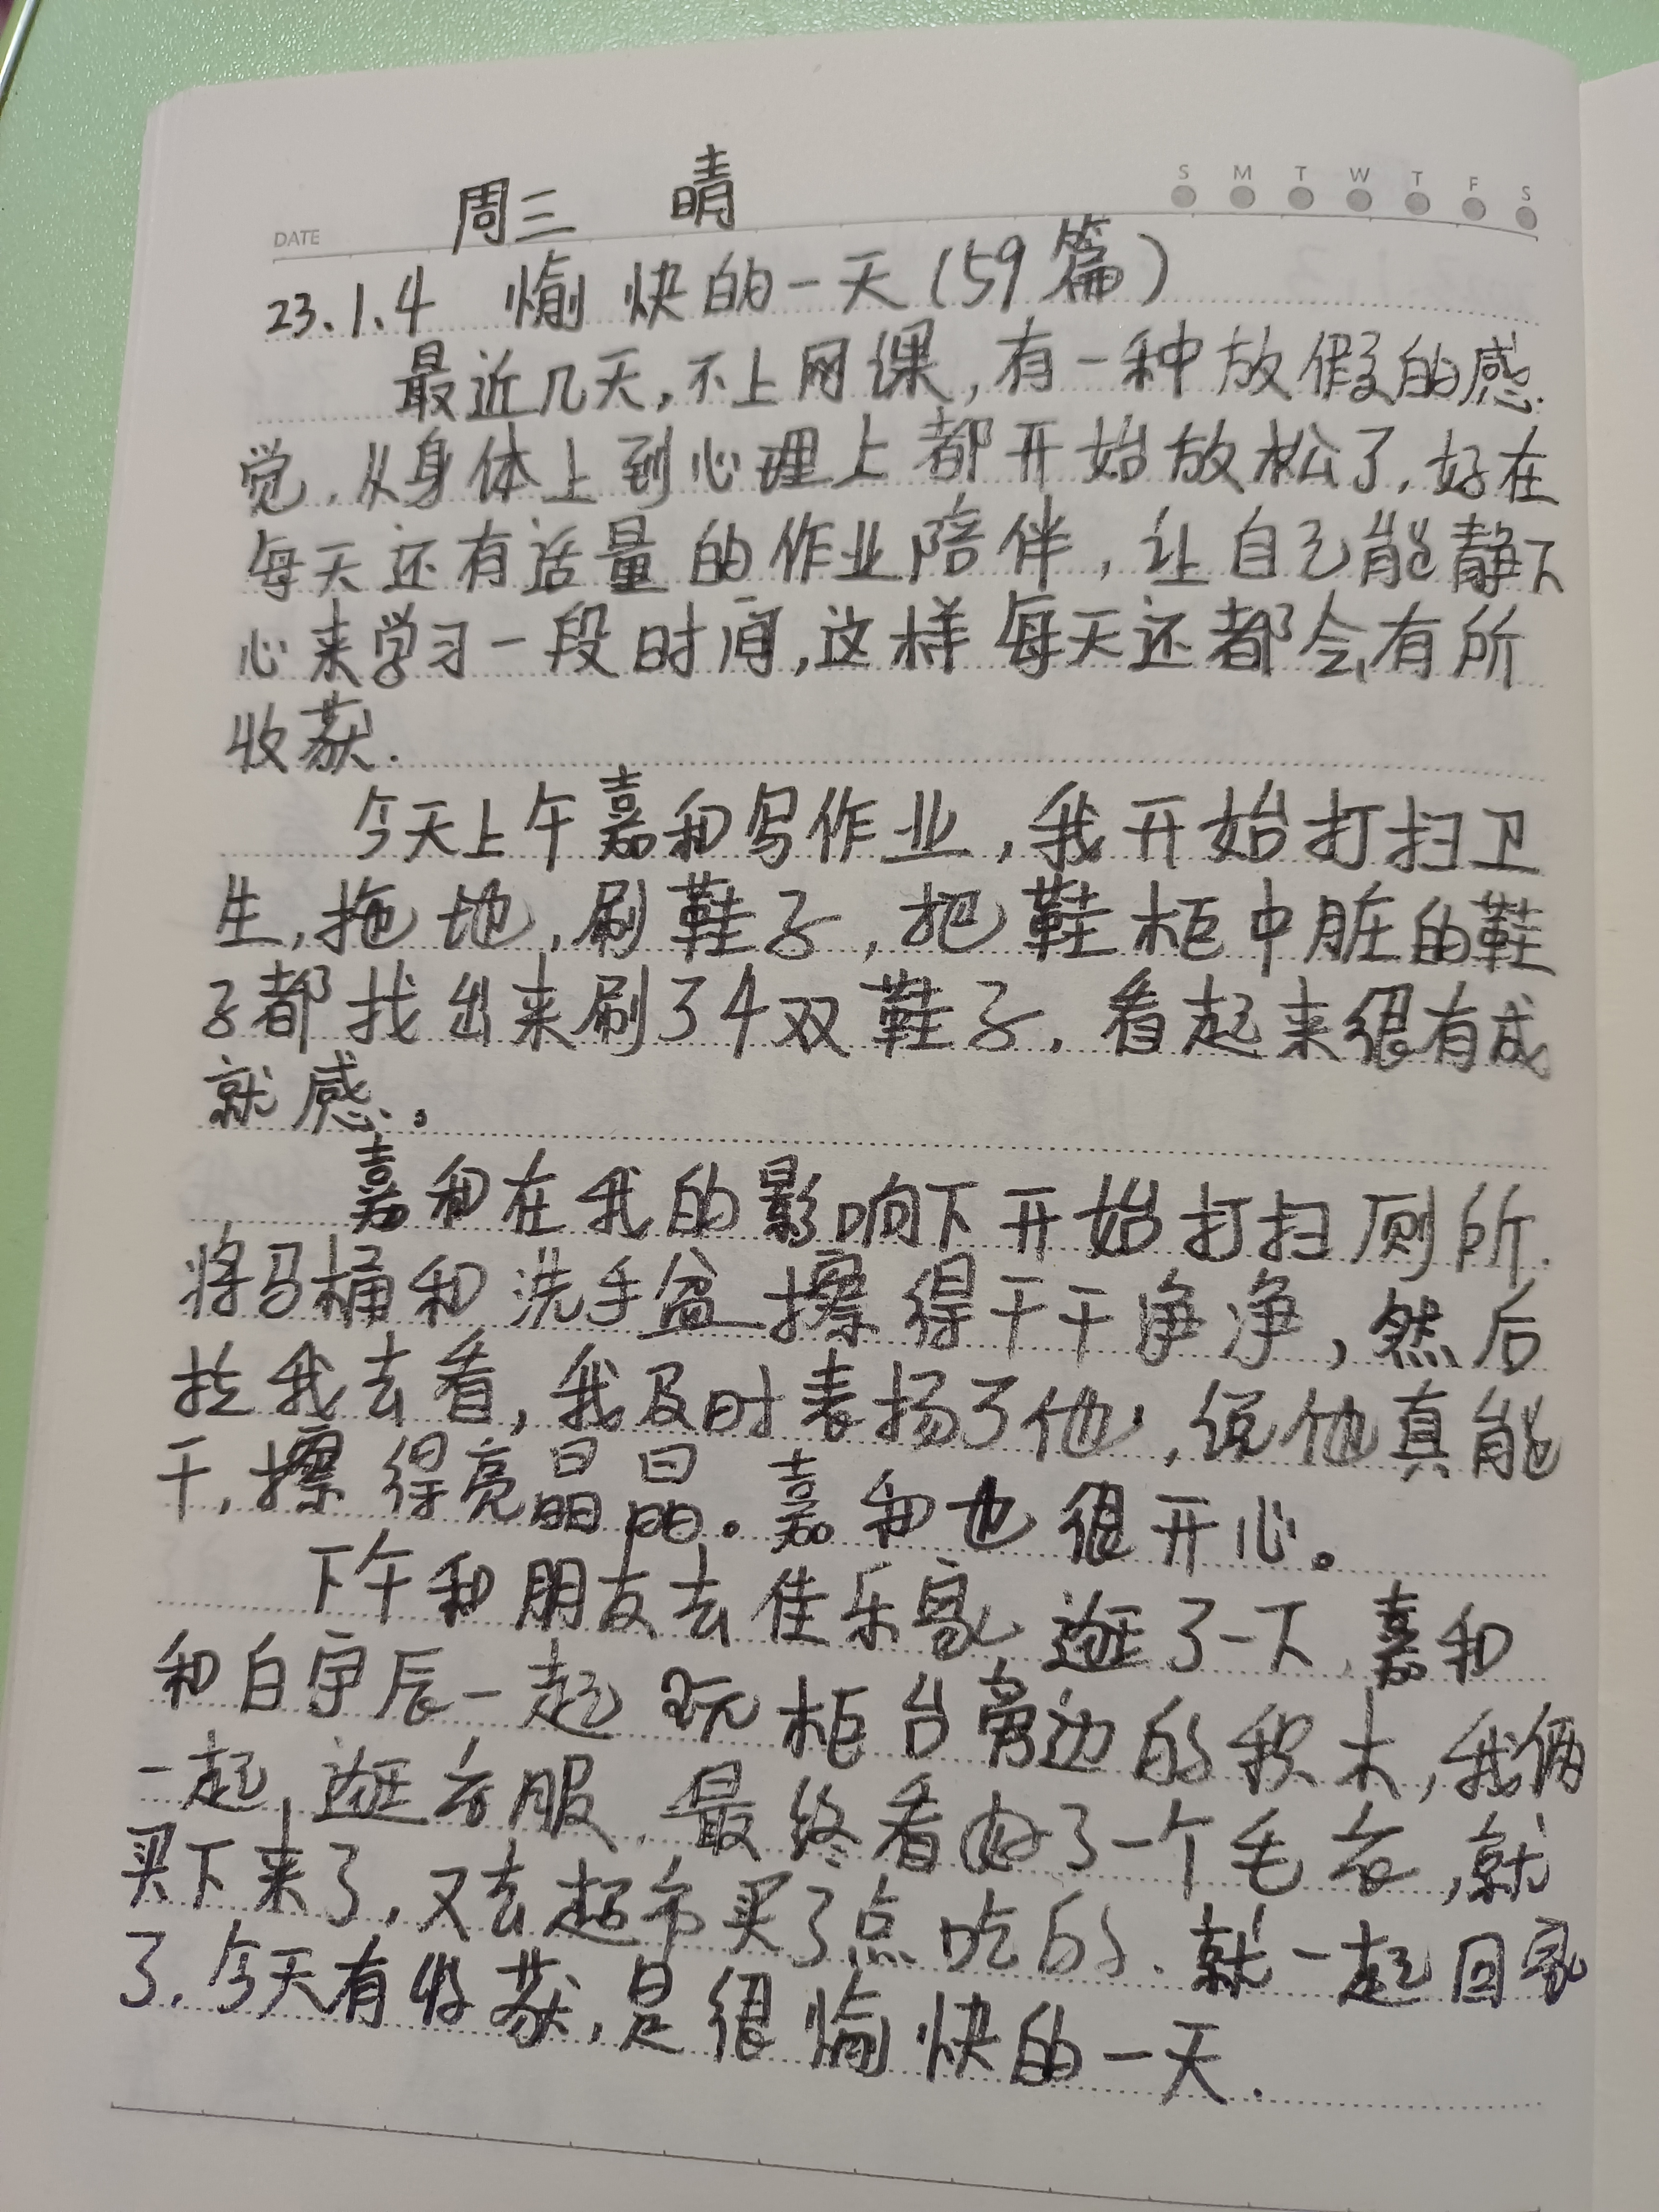 周三 晴
S M T W T F S
DATE
23.1.4 愉快的一天(59篇)
最近几天,不上网课,有一种放假的感
觉,从身体上到心理上都开始放松了,好在
每天还有适量的作业陪伴,让自己能静下
心来学习一段时间,这样每天还都会有所
收获.
今天上午嘉和写作业,我开始打扫卫
生,拖地,刷鞋子,把鞋柜中脏的鞋
子都找出来刷了4双鞋子,看起来很有成
就感。
嘉和在我的影响下开始打扫厕所.
将马桶和洗手盆擦得干干净净,然后
拉我去看,我及时表扬了他,说他真能
干,擦得亮晶晶。嘉和也很开心。
下午和朋友去佳乐家逛了一下,嘉和
和白宇辰一起玩柜台旁边的积木,我俩
一起逛衣服,最终看好了一个毛衣,就
买下来了,又去超市买了点吃的.就一起回家
了.今天有收获,是很愉快的一天.